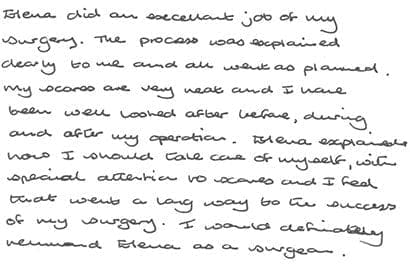 Elena did an excellent job of my
surgery. The process was explained
clearly to me and all went as planned.
My scares are very neat and I have
been well looked after before, during
and after my operation. Elena explained
how I should take care of myself, with
special attention to scares and I feel
that went a long way to the success
of my surgery. I would definately
recommend Elena as a surgeon.